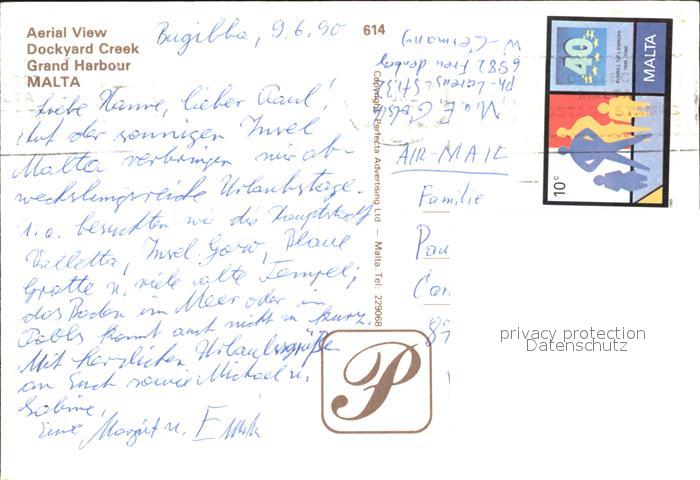 Aerial View
Dockyard Creek
Grand Harbour
MALTA
Bugibba, 9.6.90
614
Liebe Hanne, lieber Paul!
Auf der sonnigen Insel
Malta verbringen wir ab-
wechslungsreiche Urlaubstage.
U.a. besuchten wir die Hauptstadt
Valletta, Insel Gozo, Blaue
Grotte u. viele alte Tempel;
das Baden im Meer oder im
Pools kommt auch nicht zu kurz.
Mit herzlichen Urlaubsgrüßen
an Euch sowie Michael u.
Sabine,
Eure Margit u.
Copyright Perfecta Advertising Ltd — Malta Tel: 229068
M. u. E.
6982 Freudenberg
W-Germany
AIR-MAIL
Familie
Pau
MALTA
40
10c
P
privacy protection
Datenschutz